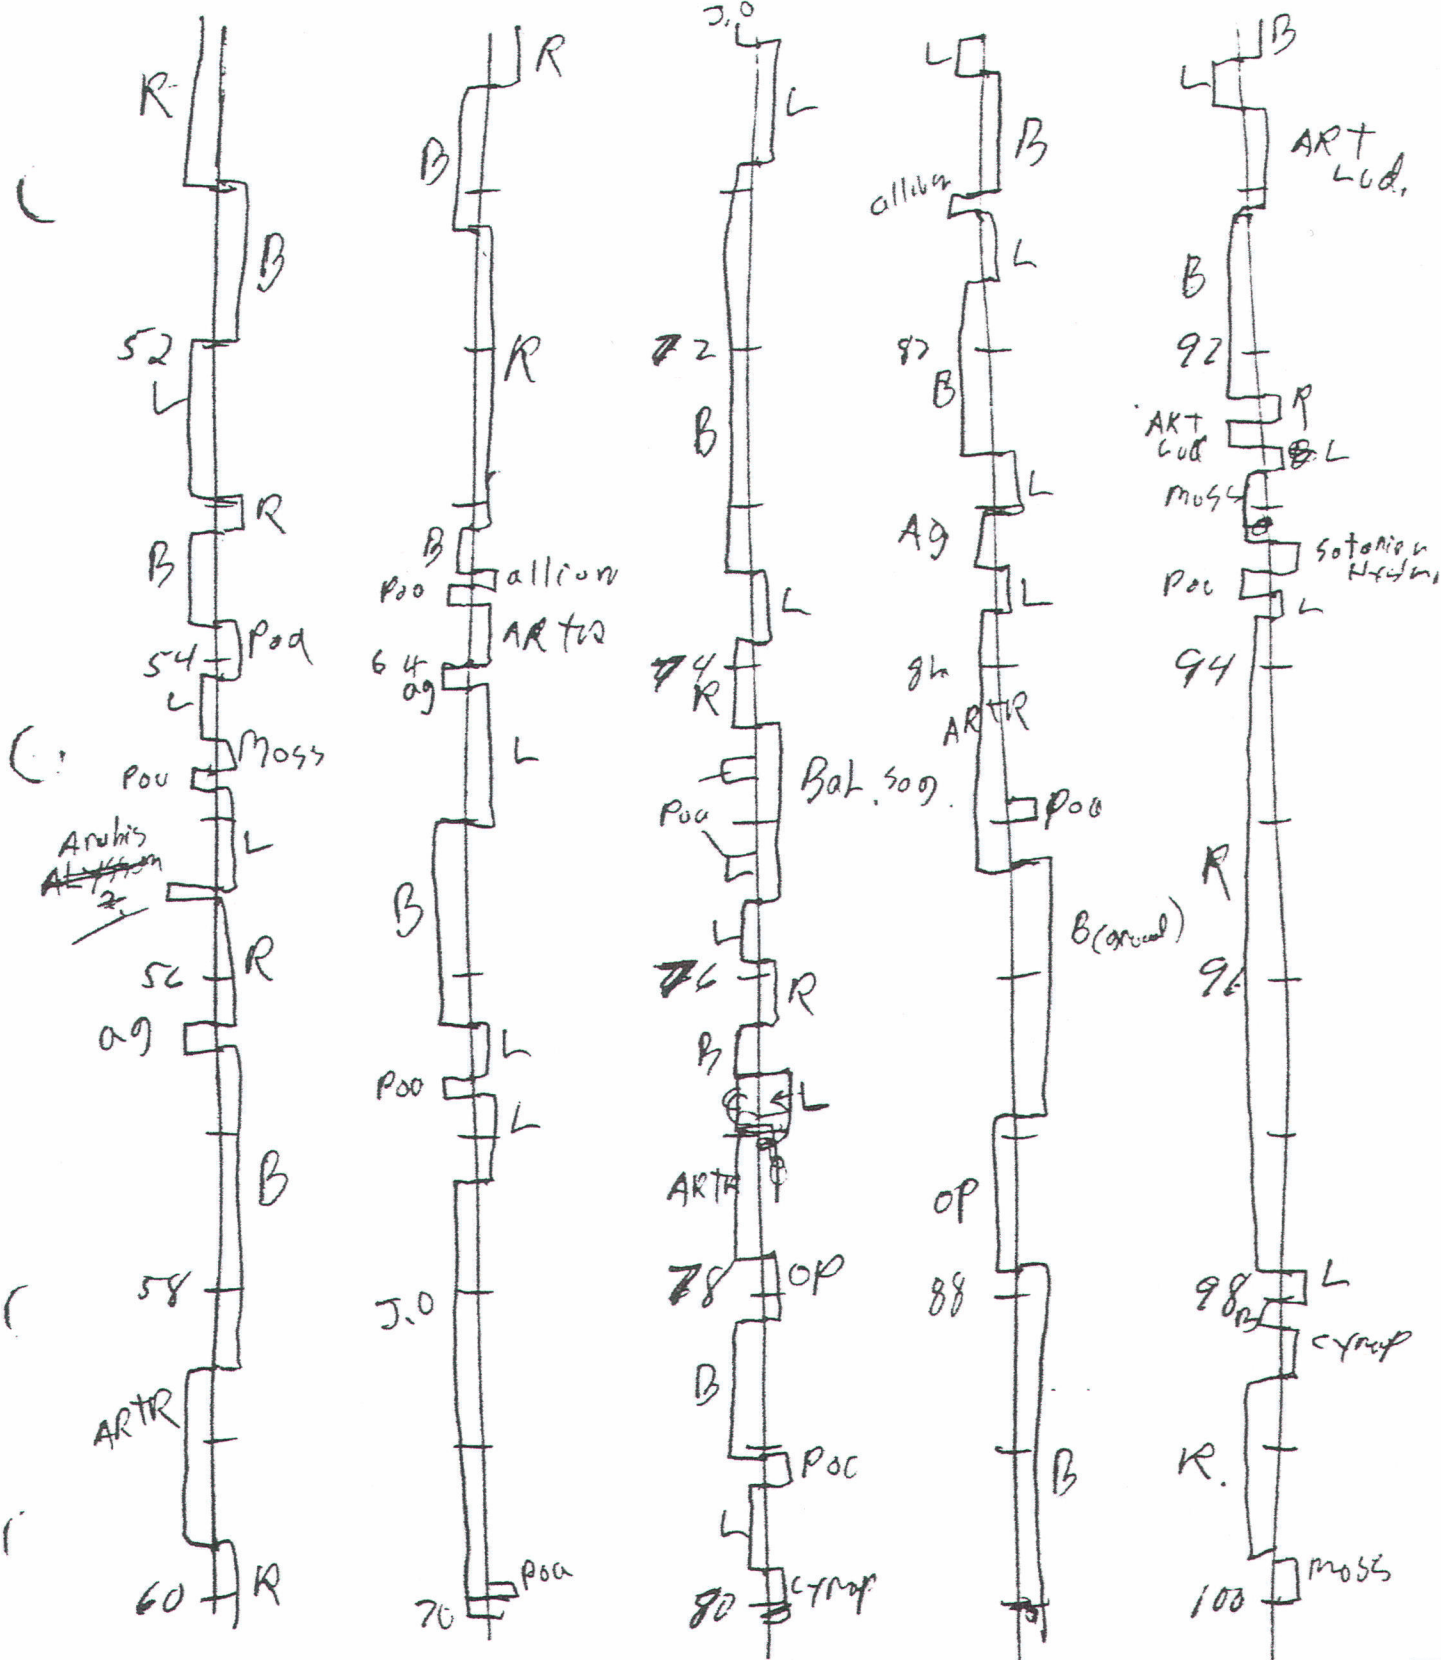 R
B
52
L
R
B
Poa
54
L
Moss
Poa
L
Arabis
ALYSSUM
?
R
56
ag
B
58
ARTR
60
R
R
B
R
B
allium
Poa
ARTR
64
ag
L
B
L
Poa
L
J.O
Poa
70
J.O
L
72
B
L
74
R
Bal. sag.
Poa
L
76
R
B
L
ARTR
78
OP
B
Poa
L
cymop
80
L
B
allium
L
82
B
L
Ag
L
84
ARTR
Poa
B (gravel)
OP
88
B
B
L
ART
Lud.
B
92
R
ART
Lud
L
Moss
Poa
L
94
R
96
L
98
B
cymop
R.
Moss
100